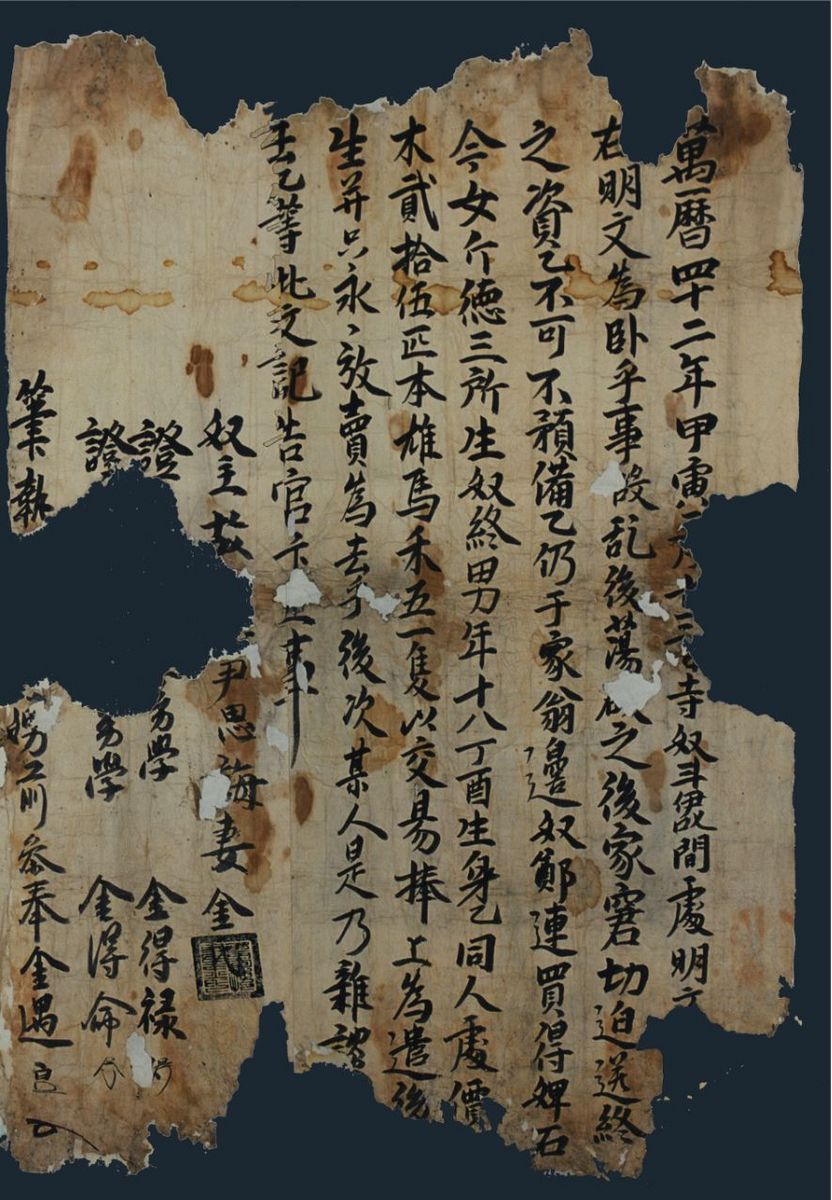 萬曆四十二年甲寅六月十三日寺奴斗間處明文
右明文爲臥乎事段乱後蕩之後家窘切迫送終
之資乙不可不預備乙仍于家翁邊奴鄭連買得婢石
今女介德三所生奴終男年十八丁酉生身乙同人處價
木貳拾伍匹本雄馬禾五一隻以交易捧上爲遣後
生幷只永〻放賣爲去乎後次某人是乃雜談
乙等此文記告官卞正事
奴主故 尹思海妻金
證 幼學 金得祿
證 幼學 金得命
筆執 甥前參奉金遇